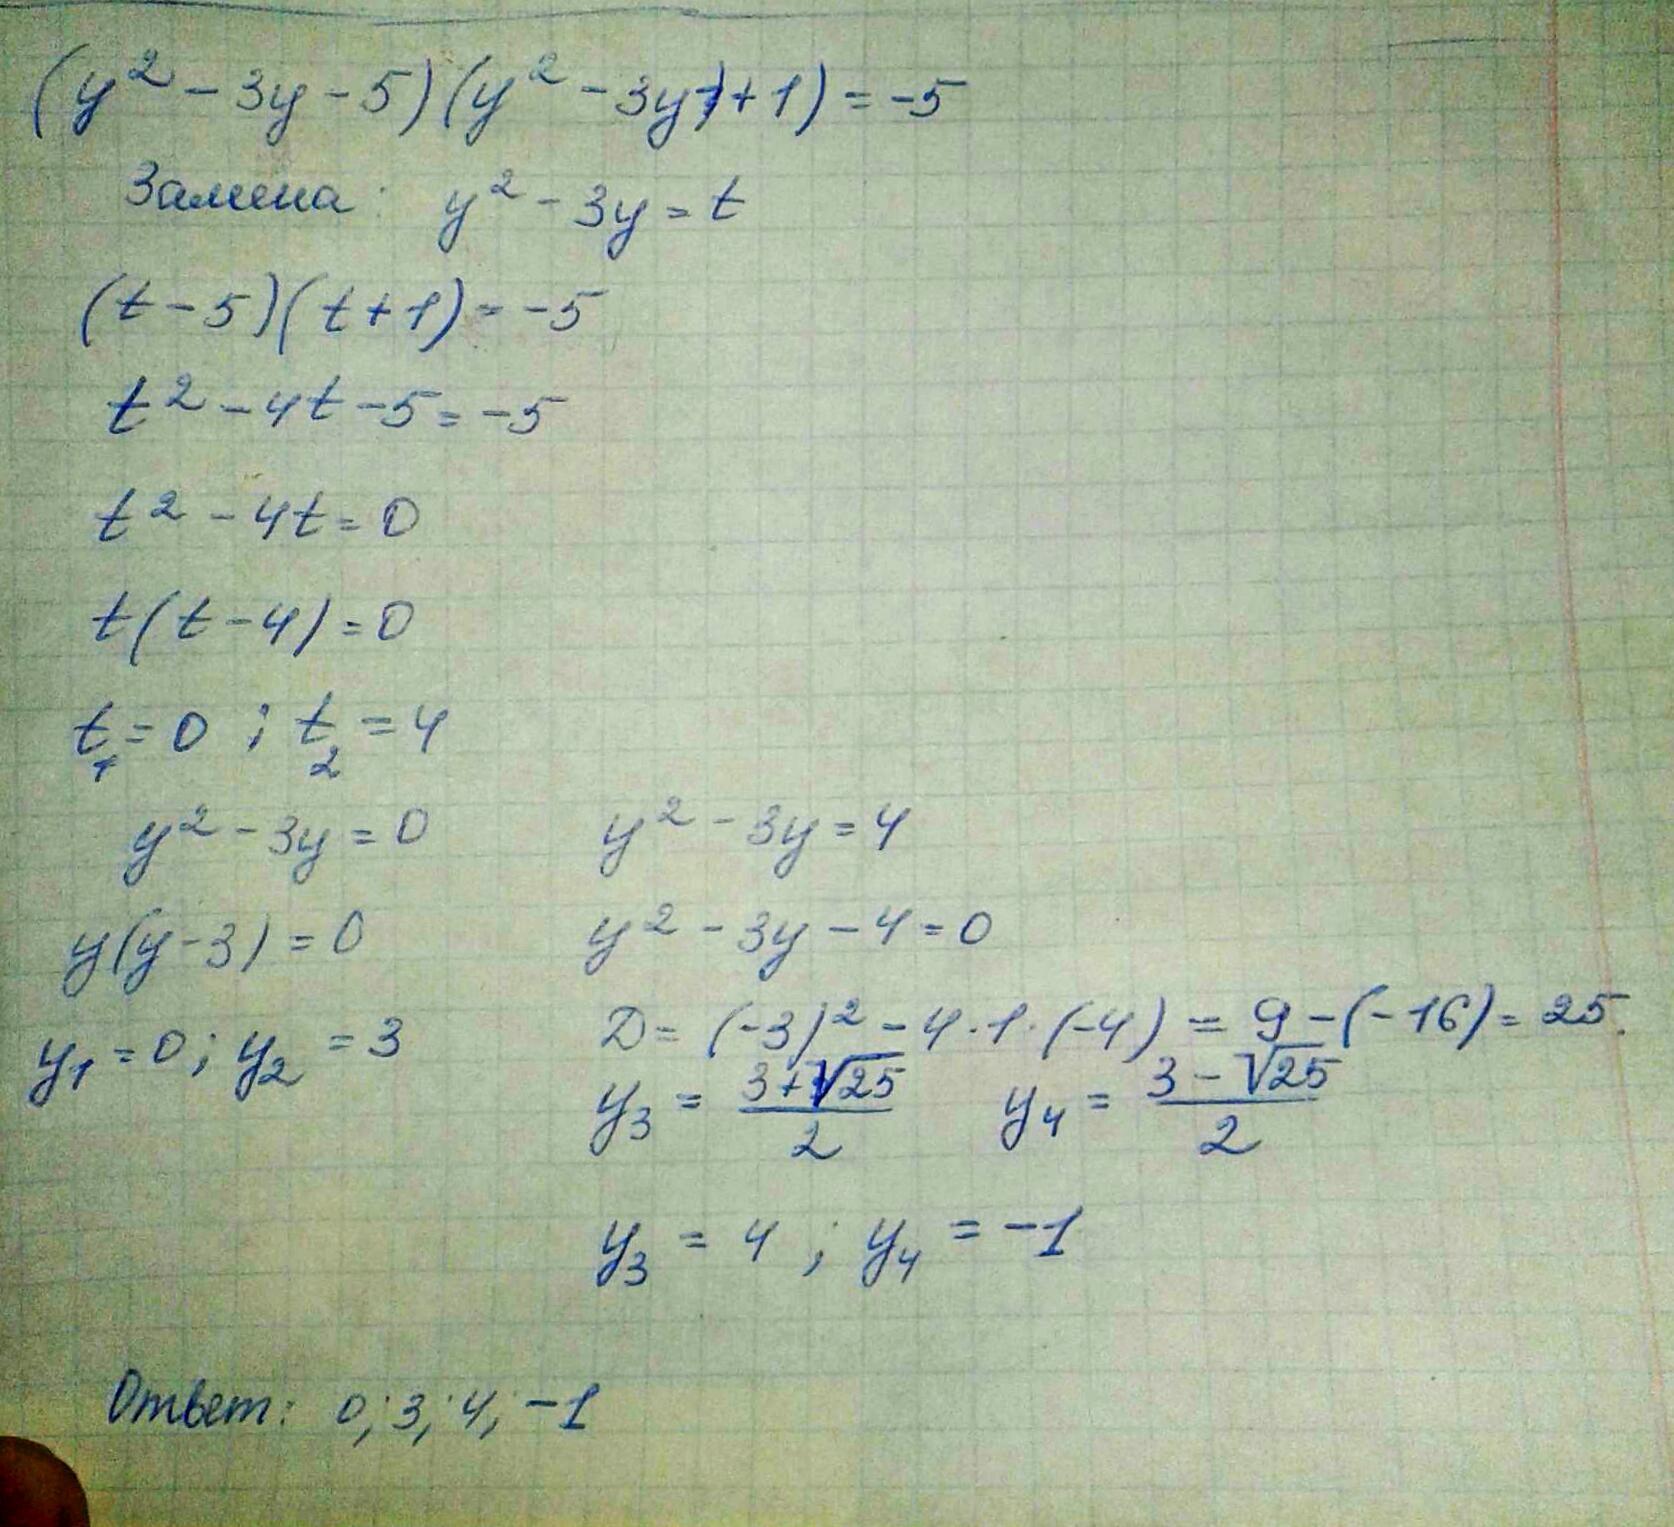 (y² - 3y - 5)(y² - 3y + 1) = -5
Замена: y² - 3y = t
(t - 5)(t + 1) = -5
t² - 4t - 5 = -5
t² - 4t = 0
t(t - 4) = 0
t₁ = 0 ; t₂ = 4
y² - 3y = 0
y(y - 3) = 0
y₁ = 0 ; y₂ = 3
y² - 3y = 4
y² - 3y - 4 = 0
D = (-3)² - 4 · 1 · (-4) = 9 - (-16) = 25.
y₃ = (3 + √25)/2 y₄ = (3 - √25)/2
y₃ = 4 ; y₄ = -1
Ответ: 0; 3; 4; -1